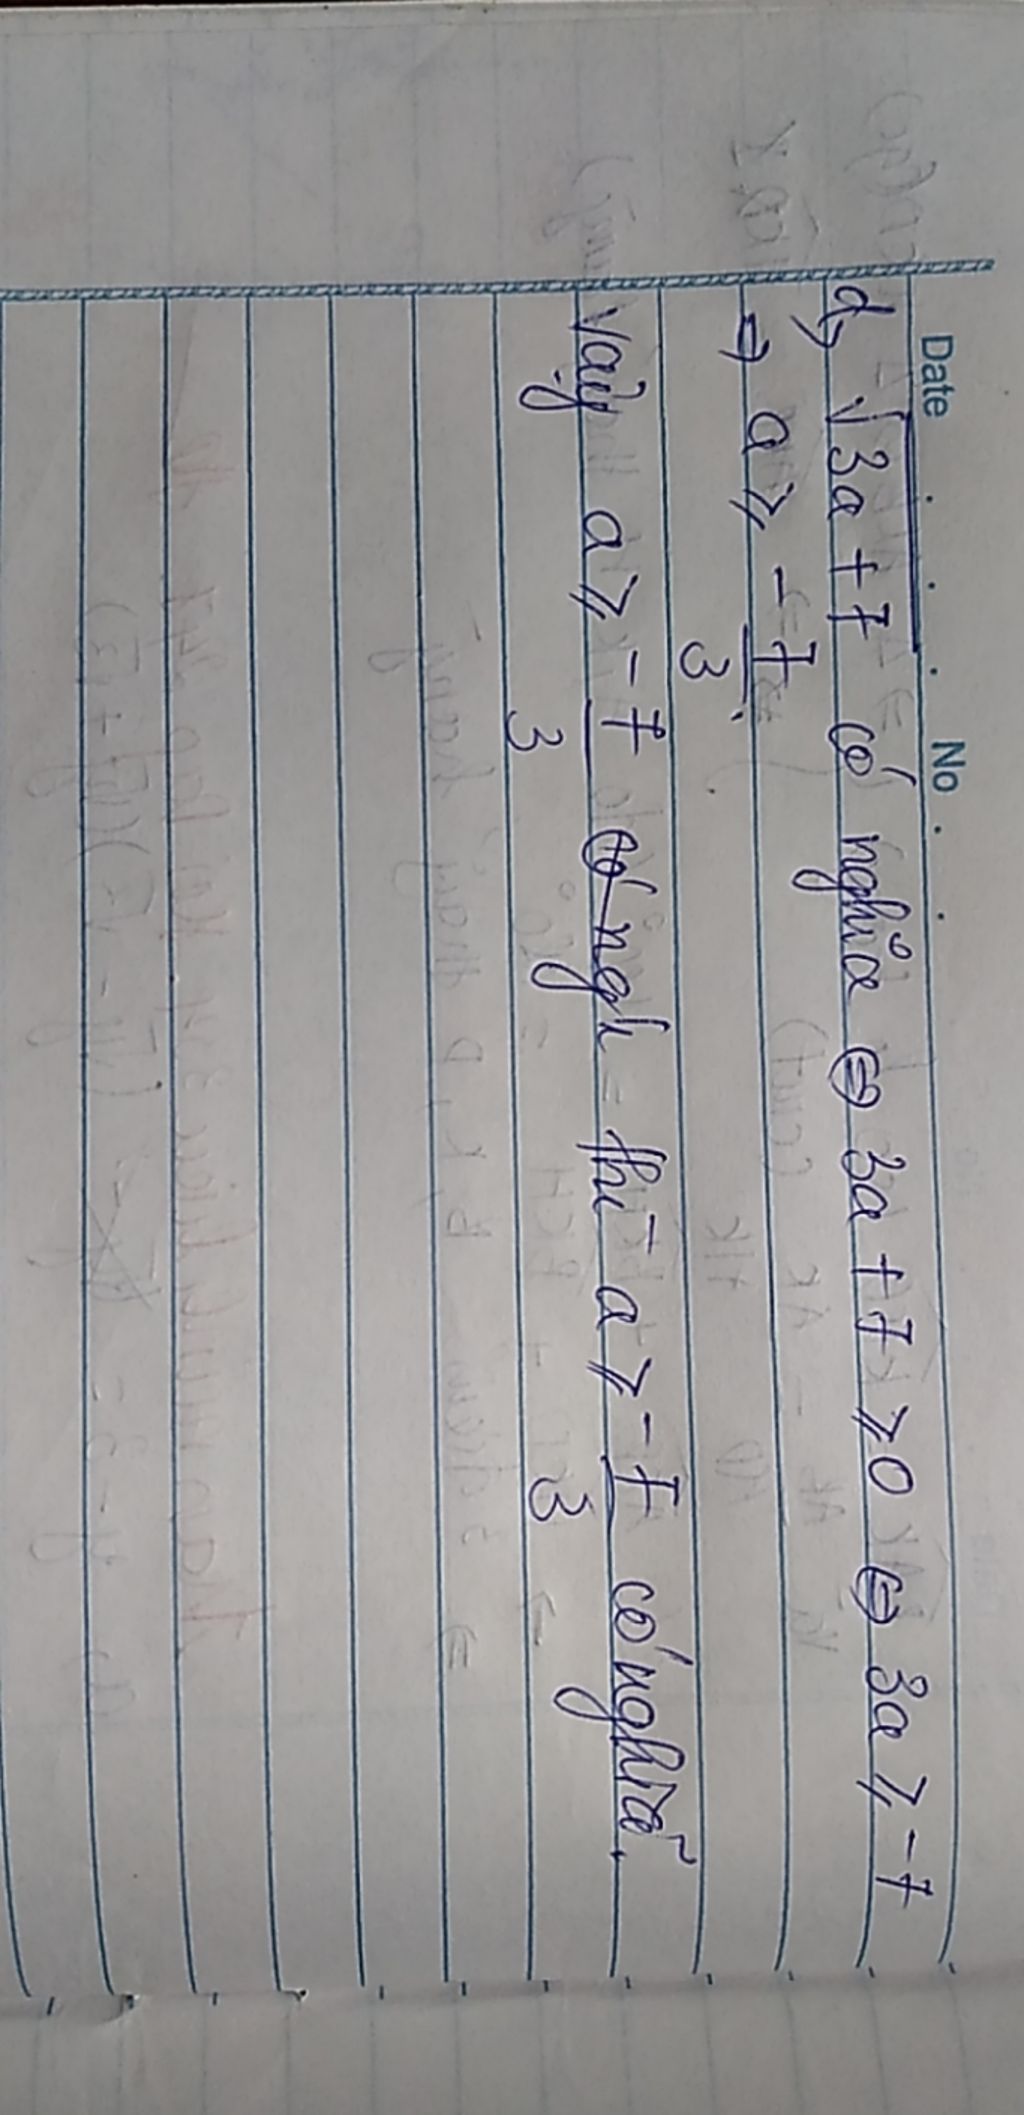 Date No
d, √3a + 7 có nghĩa ⇔ 3a + 7 ≥ 0 ⇔ 3a ≥ -7
⇒ a ≥ -7/3.
Vậy a ≥ -7/3 thì a ≥ -7/3 có nghĩa.